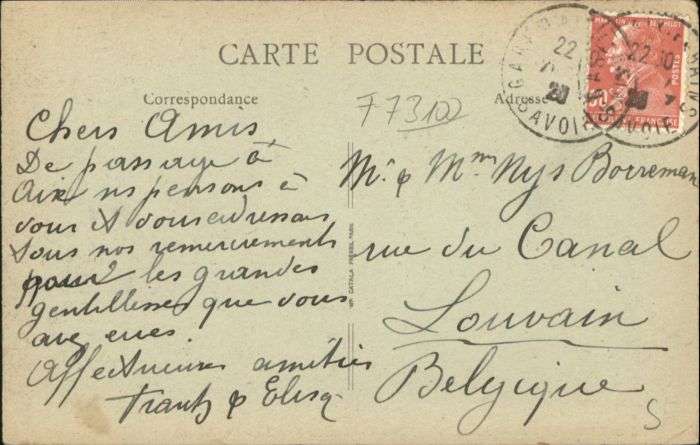 CARTE POSTALE
Correspondance
Adresse
F73102
Chers Amis
De passage à
Aix ns pensons à
vous et vous adressons
tous nos remerciements
pour les grandes
gentillesses que vous
avez eues.
Affectueuses amitiés
Frantz & Elisa
IMP. CATALA FRERES, PARIS
Mr & Mme Nys Borremans
rue du Canal
Louvain
Belgique
5
22
SAVOIE
22
SAVOIE
POSTES
FRANÇAISE